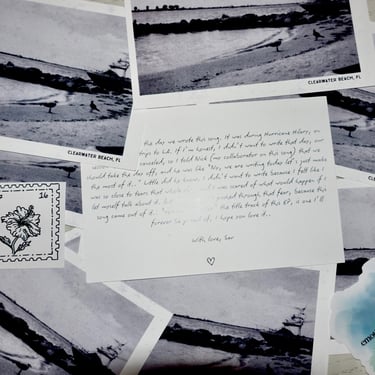 CLEARWATER BEACH, FL
CLEARWATER BEACH, FL
The day we wrote this song. It was during Hurricane Hilary, on
trips to LA. If I'm honest, I didn't want to write that day, our
canceled, so I told Nick (my collaborator on this song) that we
should take the day off, and he was like "No, we are writing today let's just make
the most of it.." Little did he know, I didn't want to write because I felt like I
was so close to tears that whole I was scared of what would happen if I
let myself talk about it. but pushed through that fear, because this
song came out of it. the title track of this EP, is one I'll
forever of. I hope you love it..
With love, Sar
16